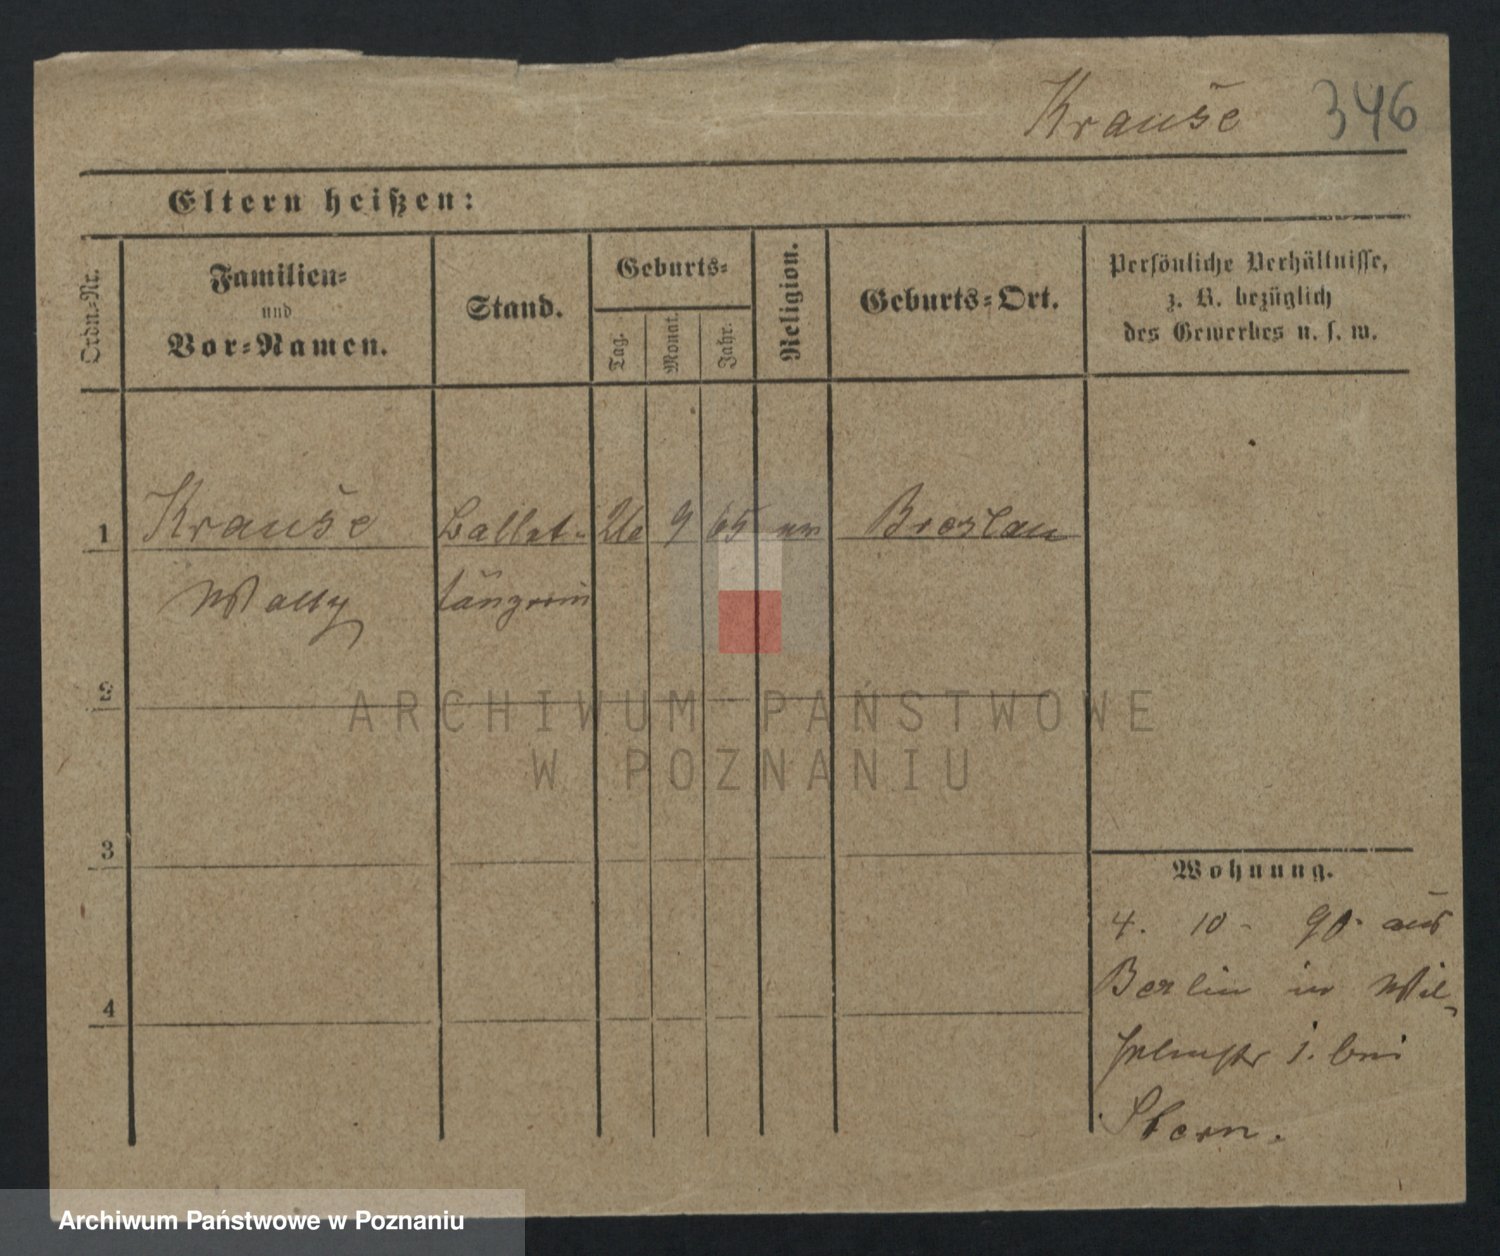 Krause 346
Eltern heißen:
Ordn.-Nr.
Familien-
und
Vor-Namen.
Stand.
Geburts-
Tag.
Monat.
Jahr.
Religion.
Geburts-Ort.
Persönliche Verhältnisse,
z. B. bezüglich
des Gewerbes u. s. w.
1 Krause Ballet- 26 9 65 Breslau
Wally tänzerin
2
3
4
Wohnung.
4. 10. 90. aus
Berlin in Wil-
helmstr 1. bei
Stern.
ARCHIWUM PAŃSTWOWE
W POZNANIU
Archiwum Państwowe w Poznaniu